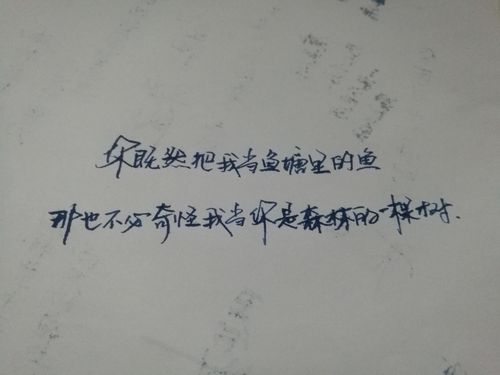 你既然把我当鱼塘里的鱼
那也不必奇怪我当你是森林的一棵树.